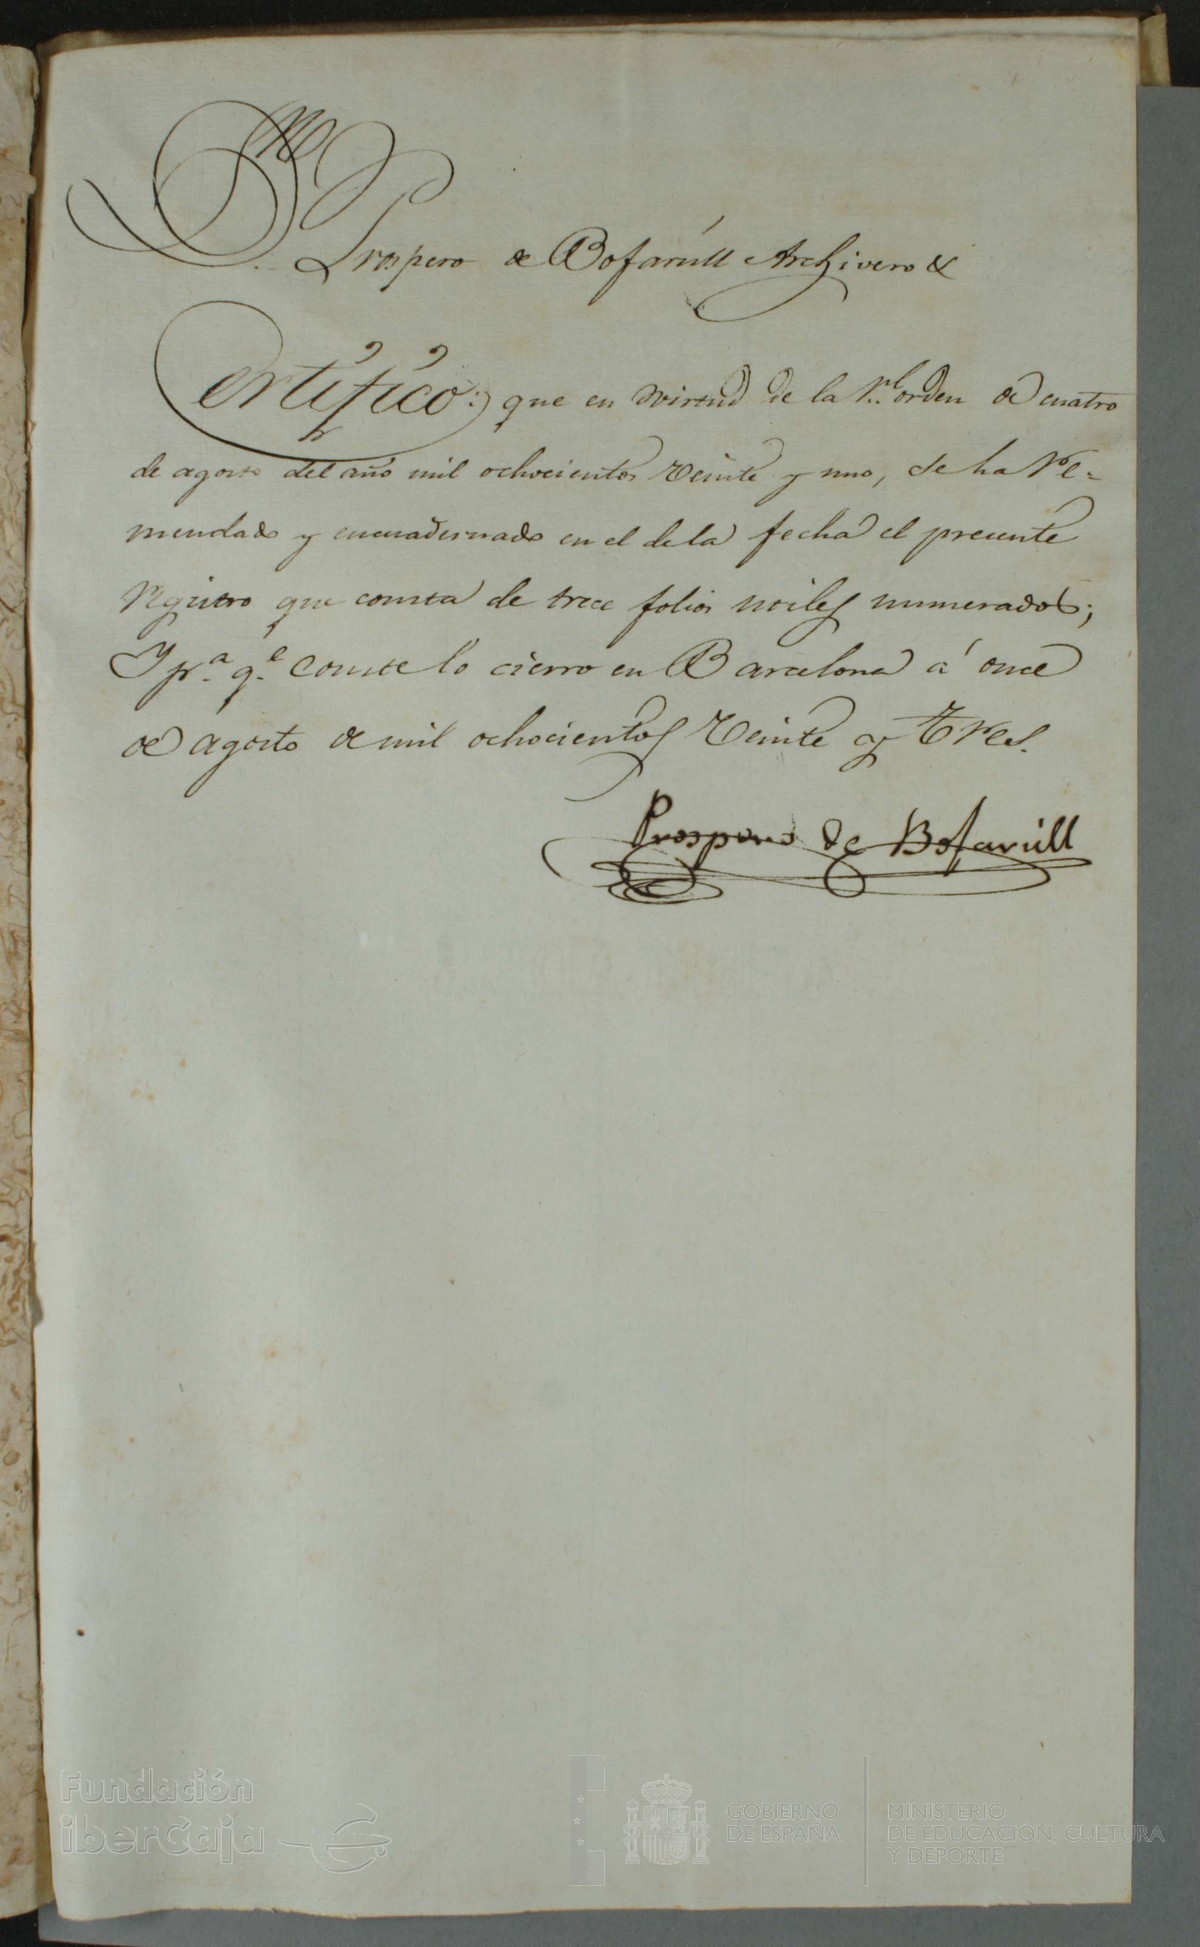 Dn.
Prospero de Bofarúll Archivero &
Certifico: que en virtud de la Rl. orden de cuatro
de agosto del año mil ochocientos veinte y uno, se ha re=
mendado y encuadernado en el de la fecha el presente
registro que consta de trece folios utiles numerados;
Y pa. qe. conste lo cierro en Barcelona á once
de agosto de mil ochocientos veinte y tres.
Prospero de Bofarúll
Fundación
iberCaja
GOBIERNO
DE ESPAÑA
MINISTERIO
DE EDUCACIÓN, CULTURA
Y DEPORTE